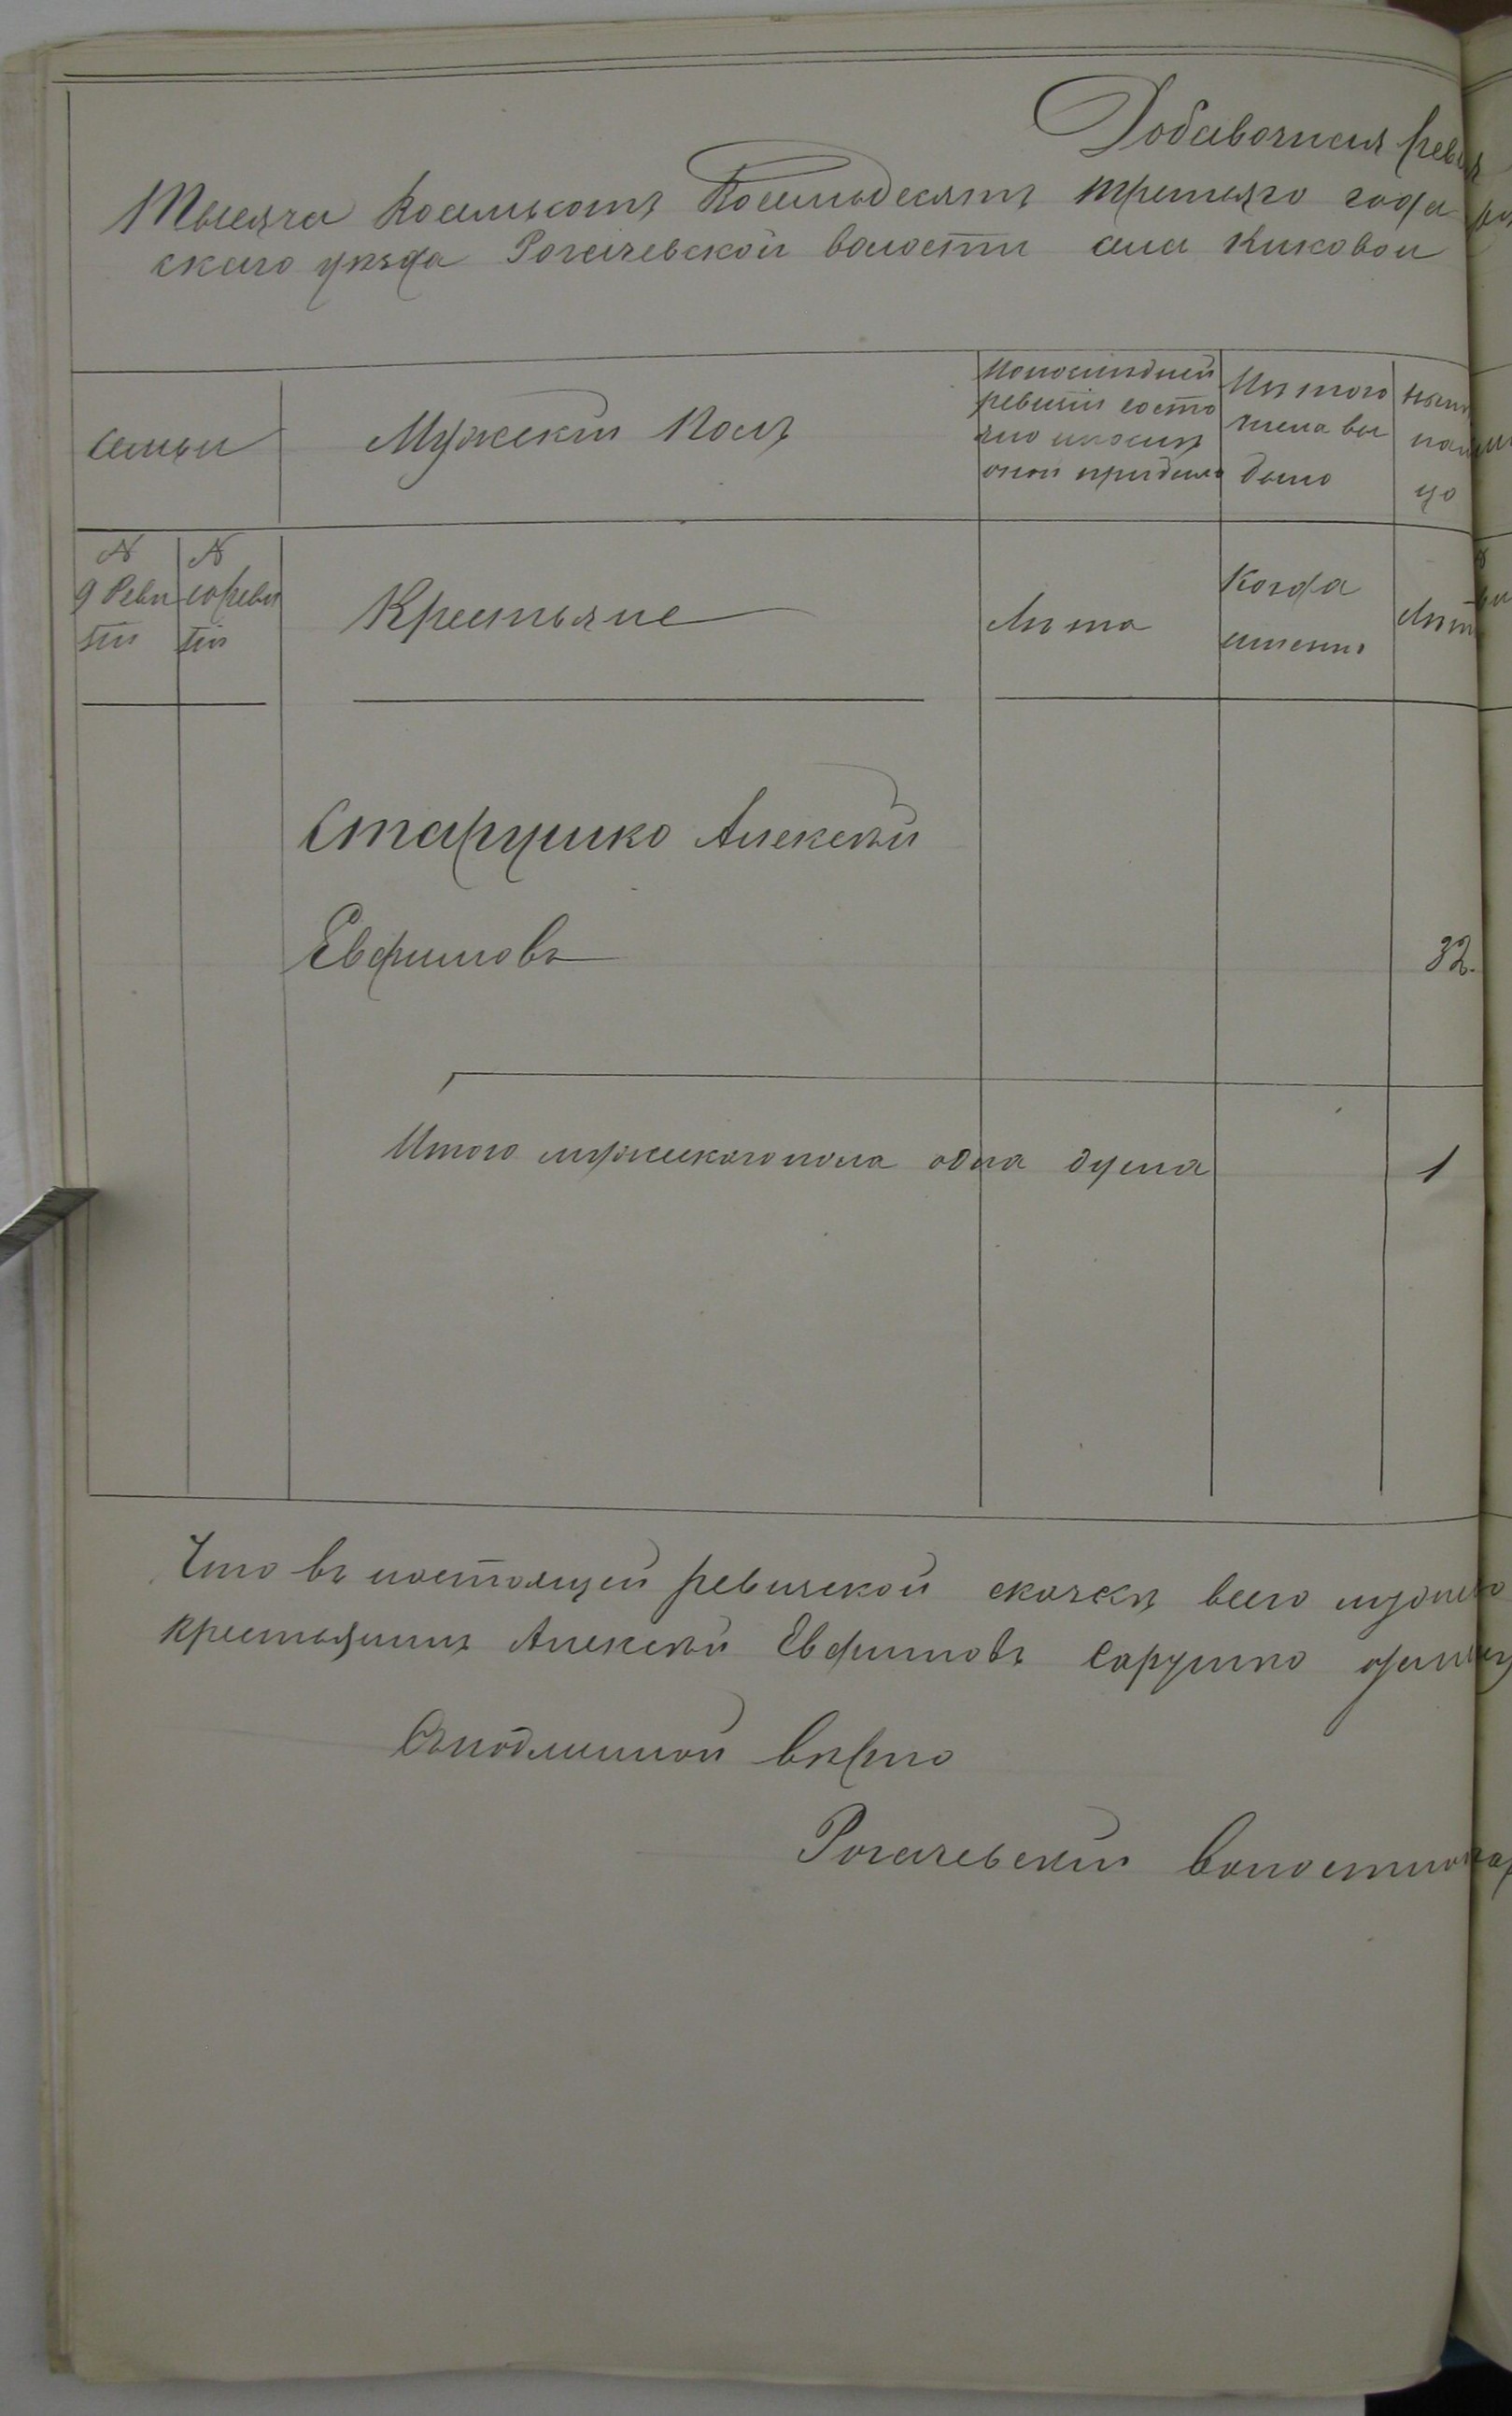 Добавочная реви
Тысяча Восемьсотъ Восемьдесятъ третьяго года
скаго уѣзда Рогачевской волости села Киковой
Семьи
Мужескій Полъ
Попослѣдней
ревизіи состо
яло ипослѣ
оной прибыло
Изъ того
числа вы
было
нынѣ
нали
цо
№
9 Реви
зіи
№
10 реви
зіи
Крестьяне
Лѣта
Когда
именно
Лѣт
Старушко Алексѣй
Евфимовъ
32.
Итого мужескагопола одна душа
1
Что въ настоящей ревизской сказкѣ всего
крестьянинъ Алексѣй Евфимовъ Сарушко
Съподлинной вѣрно
Рогачевскій волостной